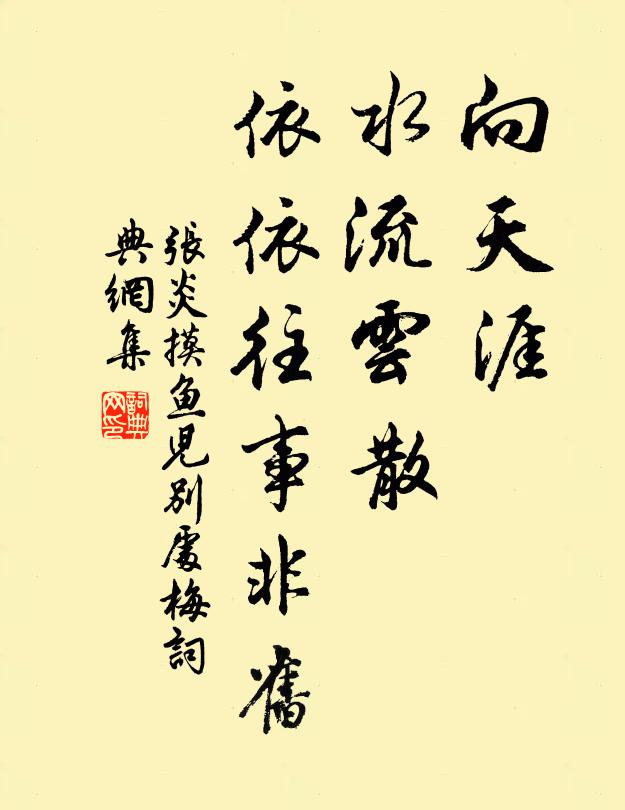 向天涯
水流雲散
依依往事非舊
張炎摸鱼児別處梅詞
典網集
詞典網印